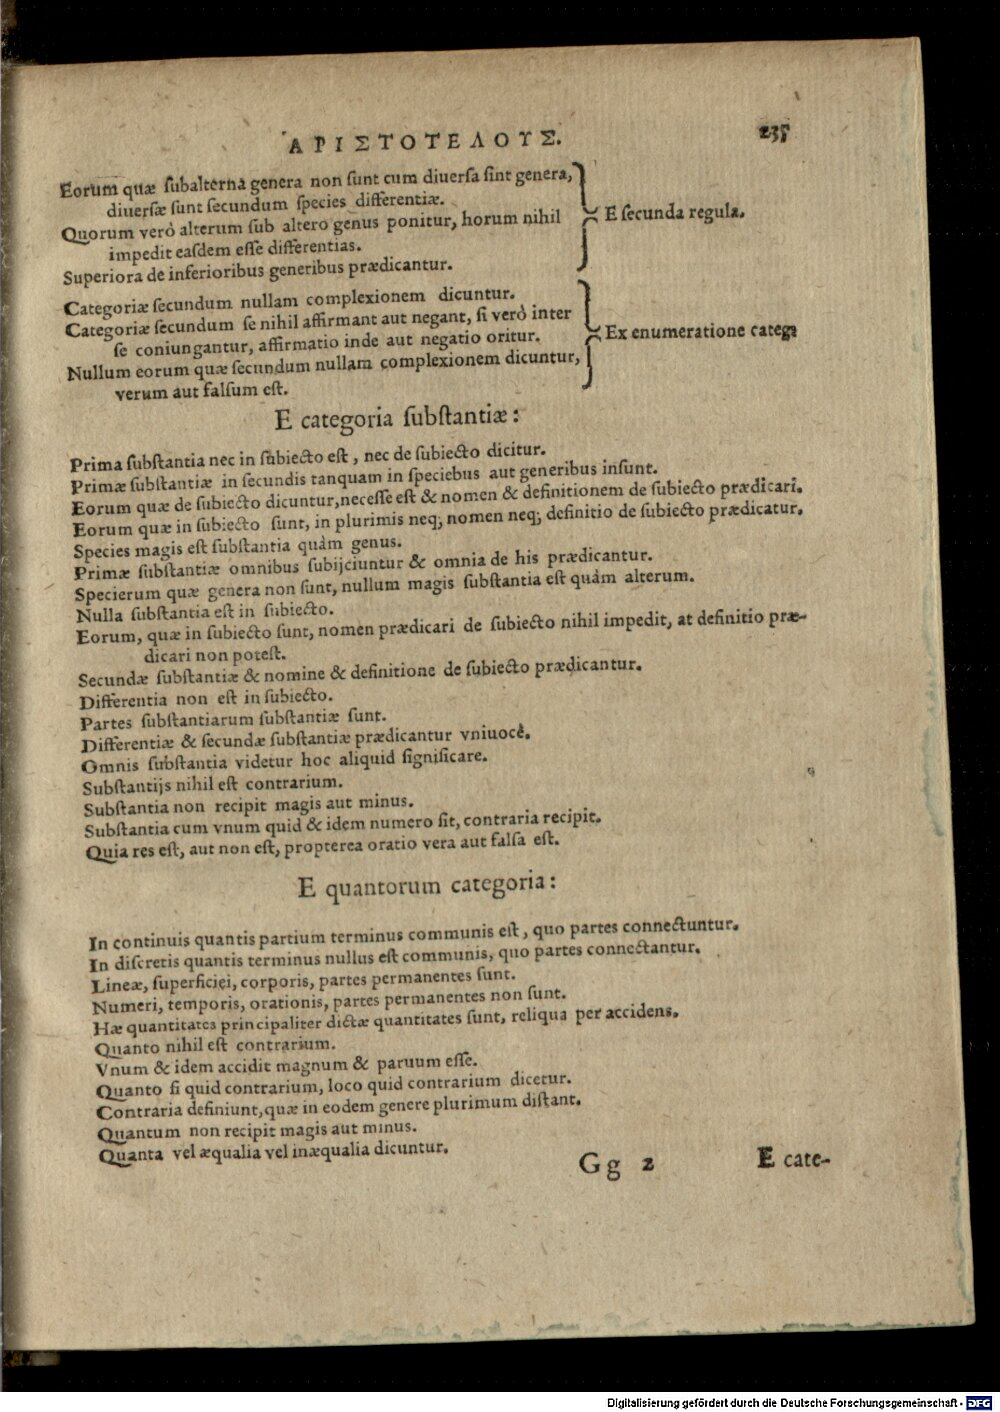 ἈΡΙΣΤΟΤΕΛΟΥΣ. 235
Eorum quæ ſubalterna genera non ſunt cum diuerſa ſint genera,
diuerſæ ſunt ſecundum ſpecies differentiæ.
Quorum verò alterum ſub altero genus ponitur, horum nihil
impedit eaſdem eſſe differentias.
Superiora de inferioribus generibus prædicantur.
E ſecunda regula.
Categoriæ ſecundum nullam complexionem dicuntur.
Categoriæ ſecundum ſe nihil affirmant aut negant, ſi verò inter
ſe coniungantur, affirmatio inde aut negatio oritur.
Nullum eorum quæ ſecundum nullam complexionem dicuntur,
verum aut falſum eſt.
Ex enumeratione categ
E categoria ſubſtantiæ:
Prima ſubſtantia nec in ſubiecto eſt, nec de ſubiecto dicitur.
Primæ ſubſtantiæ in ſecundis tanquam in ſpeciebus aut generibus inſunt.
Eorum quæ de ſubiecto dicuntur, neceſſe eſt & nomen & definitionem de ſubiecto prædicari.
Eorum quæ in ſubiecto ſunt, in plurimis neq; nomen neq; definitio de ſubiecto prædicatur.
Species magis eſt ſubſtantia quàm genus.
Primæ ſubſtantiæ omnibus ſubijciuntur & omnia de his prædicantur.
Specierum quæ genera non ſunt, nullum magis ſubſtantia eſt quàm alterum.
Nulla ſubſtantia eſt in ſubiecto.
Eorum, quæ in ſubiecto ſunt, nomen prædicari de ſubiecto nihil impedit, at definitio præ-
dicari non poteſt.
Secundæ ſubſtantiæ & nomine & definitione de ſubiecto prædicantur.
Differentia non eſt in ſubiecto.
Partes ſubſtantiarum ſubſtantiæ ſunt.
Differentiæ & ſecundæ ſubſtantiæ prædicantur vniuocè.
Omnis ſubſtantia videtur hoc aliquid ſignificare.
Subſtantijs nihil eſt contrarium.
Subſtantia non recipit magis aut minus.
Subſtantia cum vnum quid & idem numero ſit, contraria recipit.
Quia res eſt, aut non eſt, propterea oratio vera aut falſa eſt.
E quantorum categoria:
In continuis quantis partium terminus communis eſt, quo partes connectuntur.
In diſcretis quantis terminus nullus eſt communis, quo partes connectantur.
Lineæ, ſuperficiei, corporis, partes permanentes ſunt.
Numeri, temporis, orationis, partes permanentes non ſunt.
Hæ quantitates principaliter dictæ quantitates ſunt, reliqua per accidens.
Quanto nihil eſt contrarium.
Vnum & idem accidit magnum & paruum eſſe.
Quanto ſi quid contrarium, loco quid contrarium dicetur.
Contraria definiunt, quæ in eodem genere plurimum diſtant.
Quantum non recipit magis aut minus.
Quanta vel æqualia vel inæqualia dicuntur.
Gg 2 E cate-
Digitalisierung gefördert durch die Deutsche Forschungsgemeinschaft - DFG